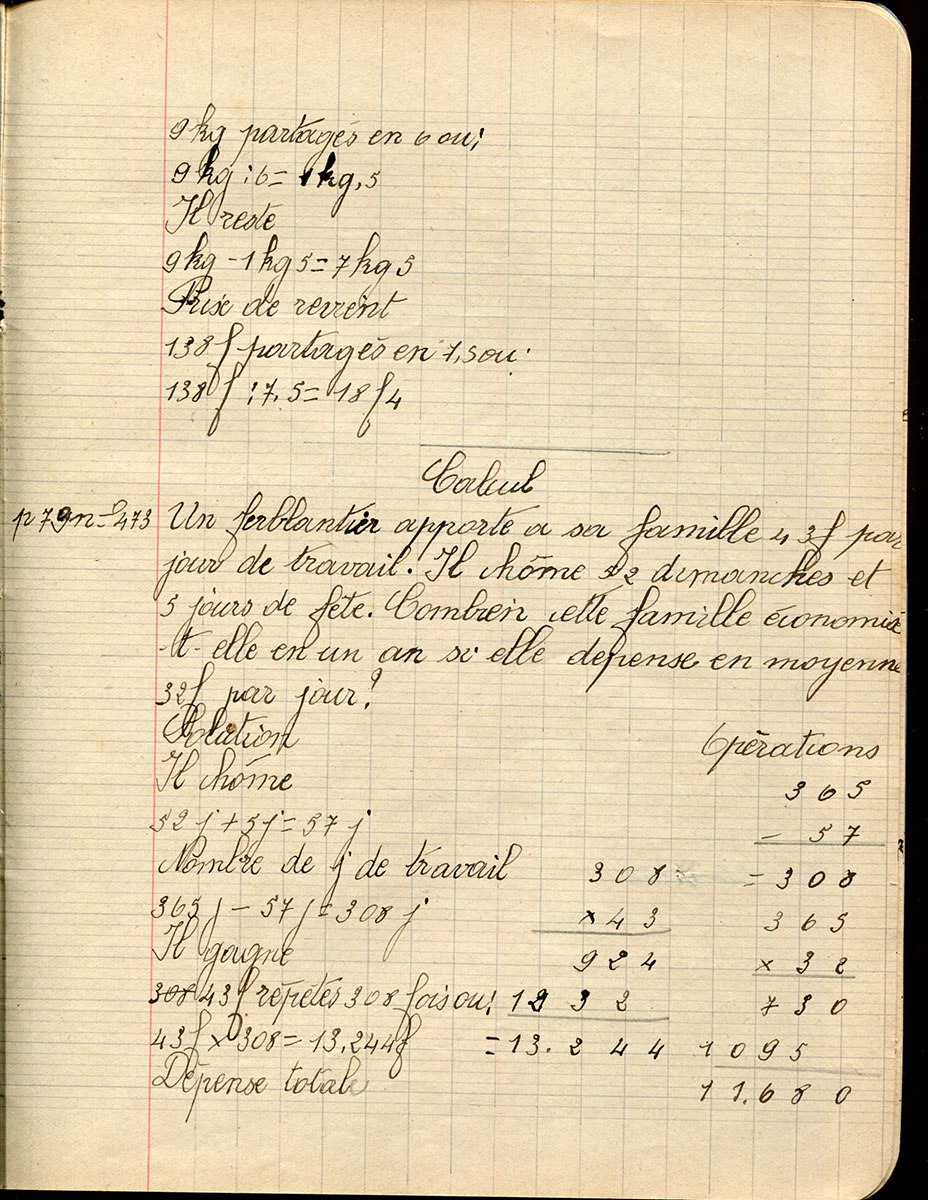 9 kg partagés en 6 ou:
9 kg : 6 = 1 kg,5
Il reste
9 kg - 1 kg 5 = 7 kg 5
Prix de revient
138 f partagés en 7,5 ou:
138 f : 7,5 = 18 f 4
Calcul
p 79 n° 473 Un ferblantier apporte à sa famille 43 f par
jour de travail. Il chôme 52 dimanches et
5 jours de fête. Combien cette famille économise
-t-elle en un an si elle dépense en moyenne
32 f par jour?
Solution
Opérations
Il chôme
52 j + 5 j = 57 j
Nombre de j de travail
365 j - 57 j = 308 j
Il gagne
308 43 f répétés 308 fois ou:
43 f × 308 = 13.244 f
Dépense totale
308
× 43
924
1232
= 13.244
365
- 57
= 308
365
× 32
730
1095
11.680